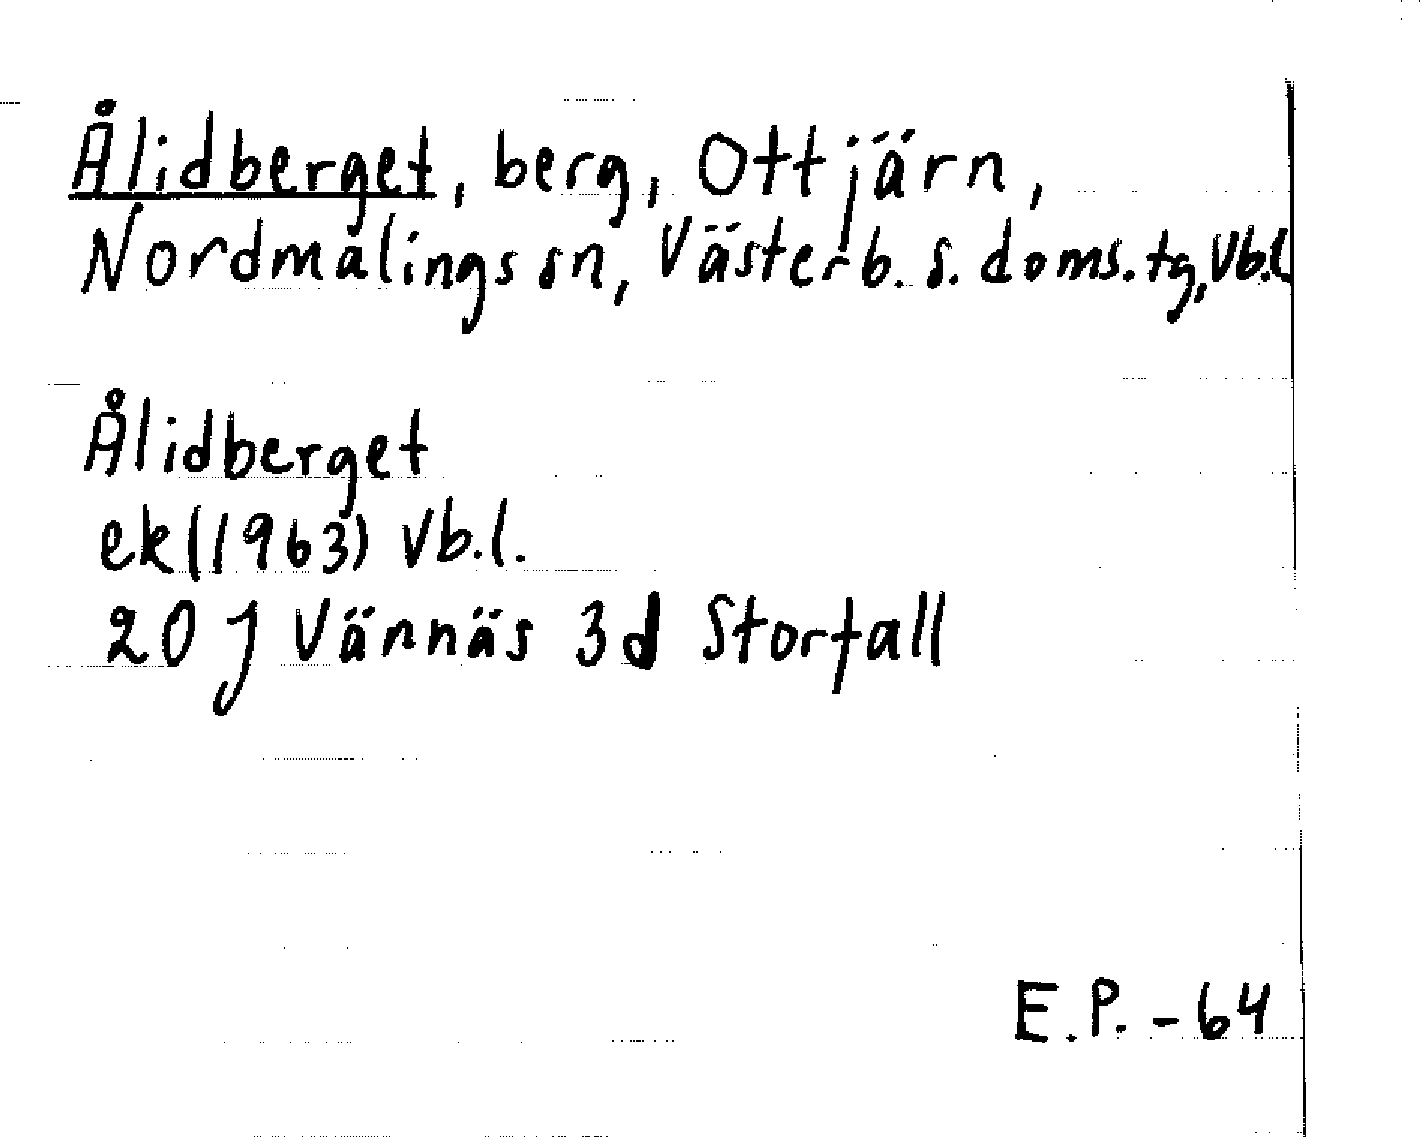 Ålidberget, berg, Ottjärn,
Nordmalings sn, Västerb. s. doms. tg, Vb.l.
Ålidberget
ek (1963) Vb.l.
20 J Vännäs 3d Storfall
E.P. - 64